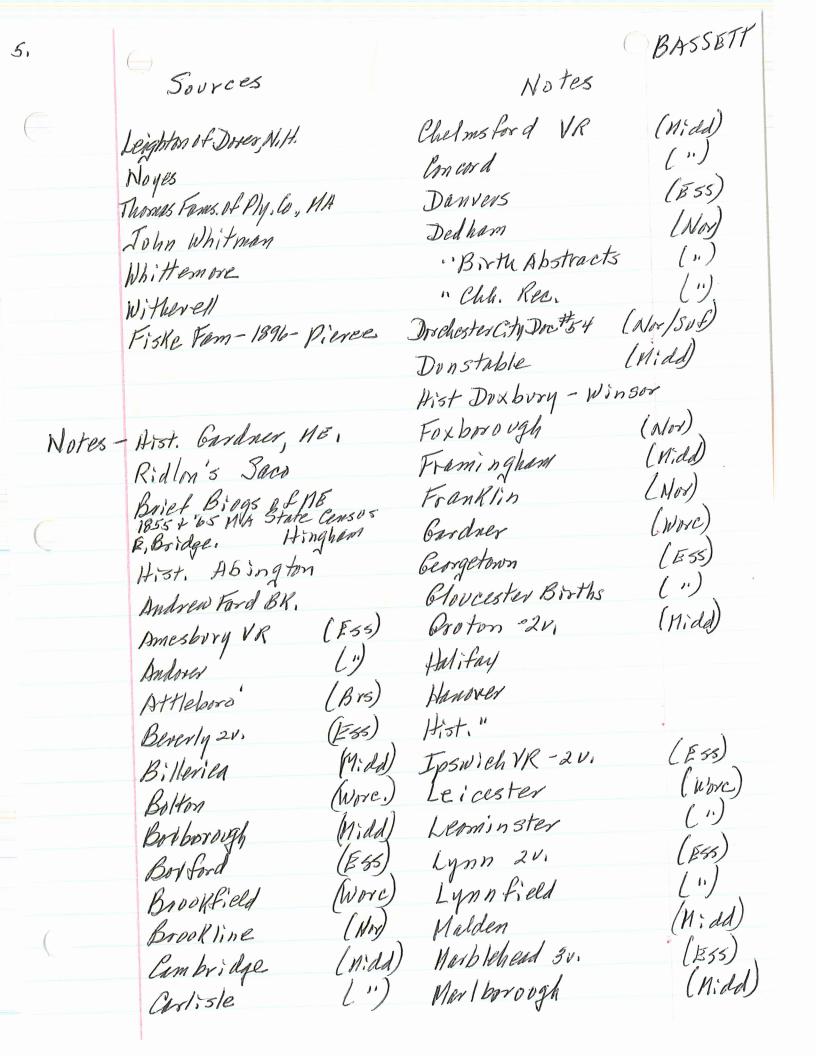 5.
BASSETT
Sources
Leighton of Dover, N.H.
Noyes
Thomas Fams. of Ply. Co., MA
John Whitman
Whittemore
Witherell
Fiske Fam - 1896 - Pierce
Notes - Hist. Gardner, ME.
Ridlon's Saco
Brief Biogs of ME
1855 + '65 MA State Census
E. Bridge. Hingham
Hist. Abington
Andrew Ford BK.
Amesbury VR (Ess)
Andover (")
Attleboro' (Brs)
Beverly 2v. (Ess)
Billerica (Midd)
Bolton (Worc.)
Boxborough (Midd)
Boxford (Ess)
Brookfield (Worc)
Brookline (Nor)
Cambridge (Midd)
Carlisle (")
Notes
Chelmsford VR (Midd)
Concord (")
Danvers (Ess)
Dedham (Nor)
" Birth Abstracts (")
" Chh. Rec. (")
Dorchester City Doc #54 (Nor/Suf)
Dunstable (Midd)
Hist Duxbury - Winsor
Foxborough (Nor)
Framingham (Midd)
Franklin (Nor)
Gardner (Worc)
Georgetown (Ess)
Gloucester Births (")
Groton - 2v. (Midd)
Halifax
Hanover
Hist. "
Ipswich VR - 2v. (Ess)
Leicester (Worc)
Leominster (")
Lynn 2v. (Ess)
Lynnfield (")
Malden (Midd)
Marblehead 3v. (Ess)
Marlborough (Midd)